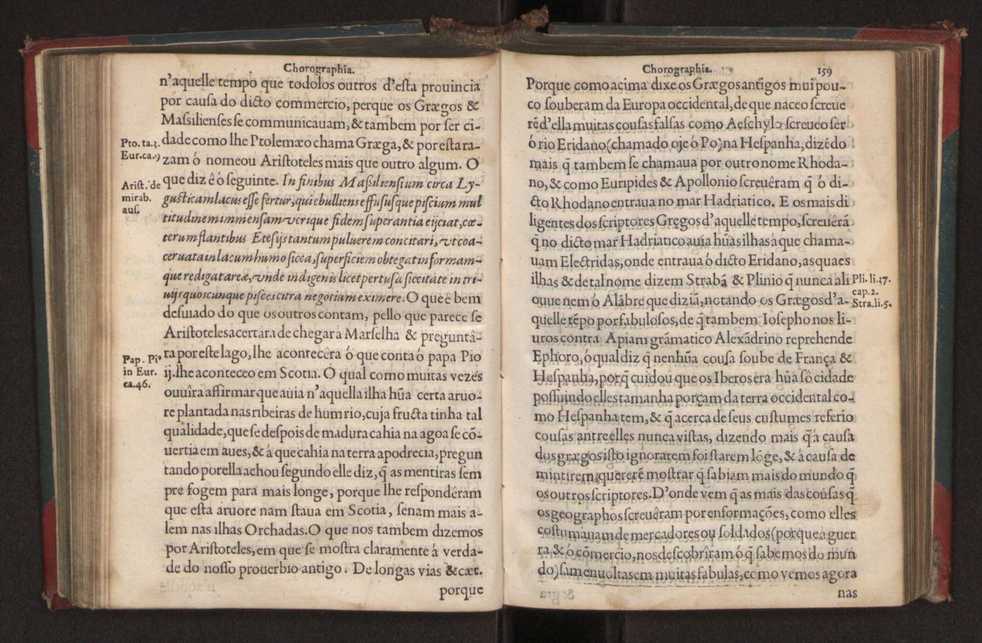 Chorographia.
n'aquelle tempo que todolos outros d'esta prouincia
por causa do dicto commercio, perque os Grægos &
Massilienses se communicauam, & tambem por ser ci-
Pto. ta. 3.
Eur. ca. 9
dade como lhe Ptolemæo chama Græga, & por esta ra-
zam ó nomeou Aristoteles mais que outro algum. O
Arist. de
mirab.
aus.
que diz ê ó seguinte. In finibus Massiliensium circa Ly-
gusticam lacus esse fertur, qui ebulliens effususque piscium mul
titudinem immensam vt crque fidem superantia eijciat, cæ-
terum flantibus Etesijs tantum puluerem concitari, vt coa-
ceruata in lacum humo sicca, superficiem obtegat in formam-
que redigat areæ, vnde indigenis licet pertusa siccitate in tri-
uijs quoscunque pisces citra negotium eximere. O que ê bem
desuiado do que os outros contam, pello que parece se
Aristoteles acertára de chegar a Marselha & preguntâ-
ra por este lago, lhe acontecera ó que conta ó papa Pio
Pap. Pi⁹
in Eur.
ca. 46.
ij. lhe aconteceo em Scotia. O qual como muitas vezes
ouuira affirmar que auia n'aquella ilha hũa certa aruo-
re plantada nas ribeiras de hum rio, cuja fructa tinha tal
qualidade, que se despois de madura cahia na agoa se cõ-
uertia em aues, & â que cahia na terra apodrecia, pregun
tando por ella achou segundo elle diz, q̃ as mentiras sem
pre fogem para mais longe, porque lhe responderam
que esta aruore nam staua em Scotia, senam mais a-
lem nas ilhas Orchadas. O que nos tambem dizemos
por Aristoteles, em que se mostra claramente â verda-
de do nosso prouerbio antigo. De longas vias & cæt.
porque
Chorographia. 159
Porque como acima dixe os Grægos antigos mui pou-
co souberam da Europa occidental, de que naceo screue
rẽ d'ella muitas cousas falsas como Aeschylo screueo ser
ó rio Eridano (chamado oje ó Po) na Hespanha, dizẽdo
mais q̃ tambem se chamaua por outro nome Rhoda-
no, & como Euripides & Apollonio screuêram q̃ ó di-
cto Rhodano entraua no mar Hadriatico. E os mais di
ligentes dos scriptores Gregos d'aquelle tempo, screuerã
q̃ no dicto mar Hadriatico auia hũas ilhas à que chama-
uam Electridas, onde entraua ó dicto Eridano, as quaes
ilhas & de tal nome dizem Strabã & Plinio q̃ nunca ali
Pli. li. 37.
cap. 2.
Stra. li. 5.
ouue nem ó Alâbre que diziã, notando os Grægos d'a-
quelle tẽpo por fabulosos, de q̃ tambem Iosepho nos li-
uros contra Apiam grãmatico Alexãdrino reprehende
Ephoro, ó qual diz q̃ nenhũa cousa soube de França &
Hespanha, porq̃ cuidou que os Iberos era hũa só cidade
possuindo elles tamanha porçam da terra occidental co-
mo Hespanha tem, & q̃ acerca de seus custumes referio
cousas antre elles nunca vistas, dizendo mais q̃ â causa
dos grægos isto ignorarem foi starem lõge, & â causa de
mintirem, quererẽ mostrar q̃ sabiam mais do mundo q̃
os outros scriptores. D'onde vem q̃ as mais das cousas q̃
os geographos screuêram por enformações, como elles
costumauam de mercadores ou soldados (porque a guer
ra & ó cõmercio, nos descobrîram ó q̃ sabemos do mun
do) sam enuoltas em muitas fabulas, como vemos agora
nas